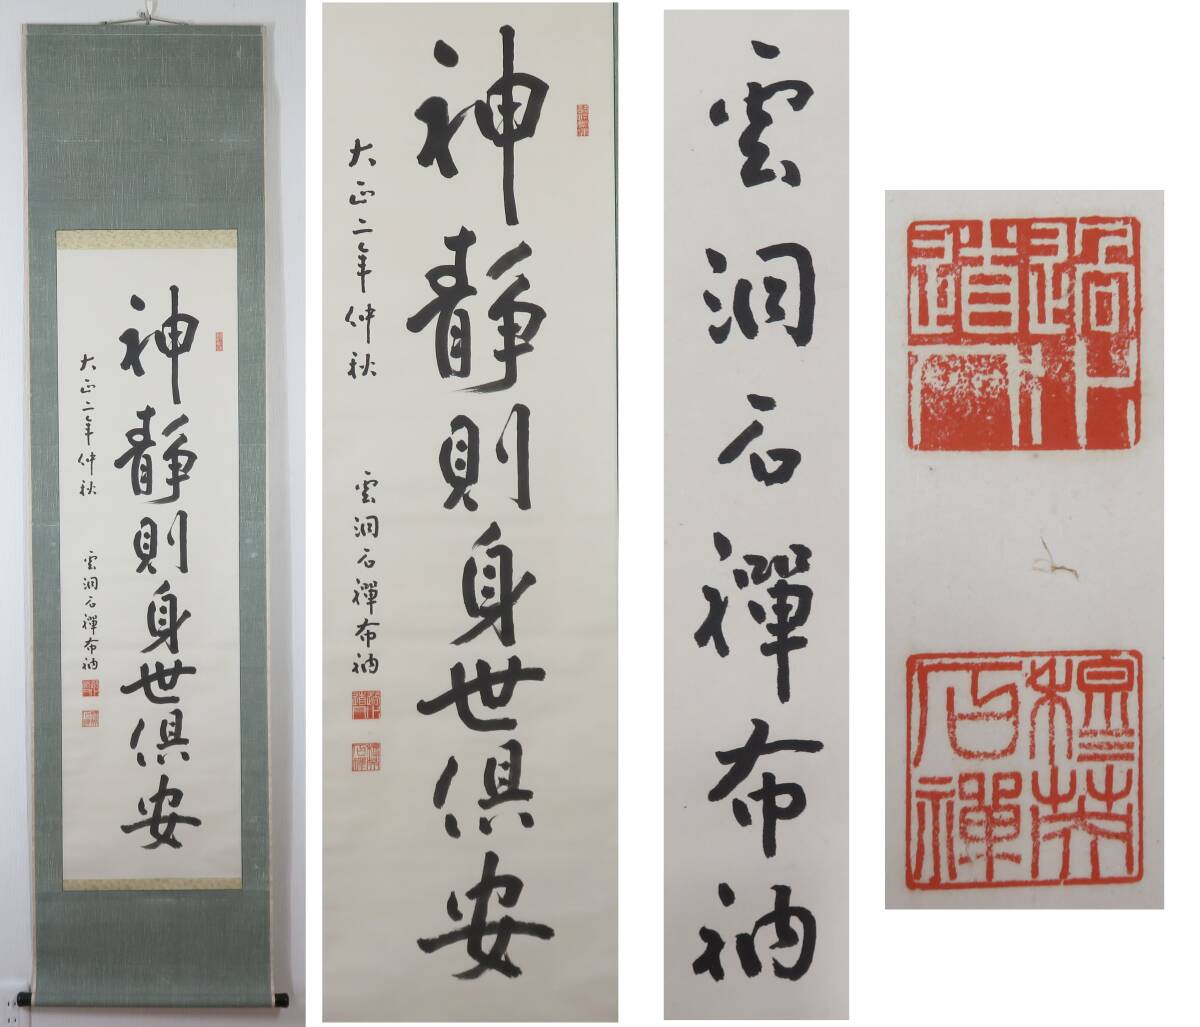 神靜則身世俱安
大正二年仲秋
雲洞石禪布衲
神靜則身世俱安
大正二年仲秋
雲洞石禪布衲
雲洞石禪布衲
穆英
石禪